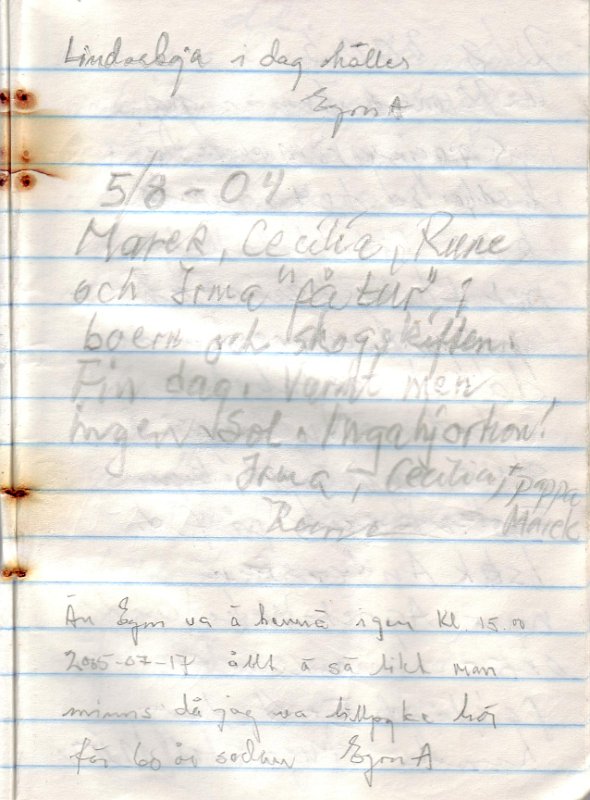 i dag hälles
Egon A
5/8 - 04
Marek, Cecilia, Rune
och Irma "på tur" i
och skogsskiften.
Fin dag. Varmt men
ingen sol. Inga hjortron!
Irma, Cecilia, + pappa
Rune Marek
Än Egon va å hemma igen Kl. 15.00
2005-07-17 allt å så likt man
minns då jag va här
för 60 år sedan Egon A